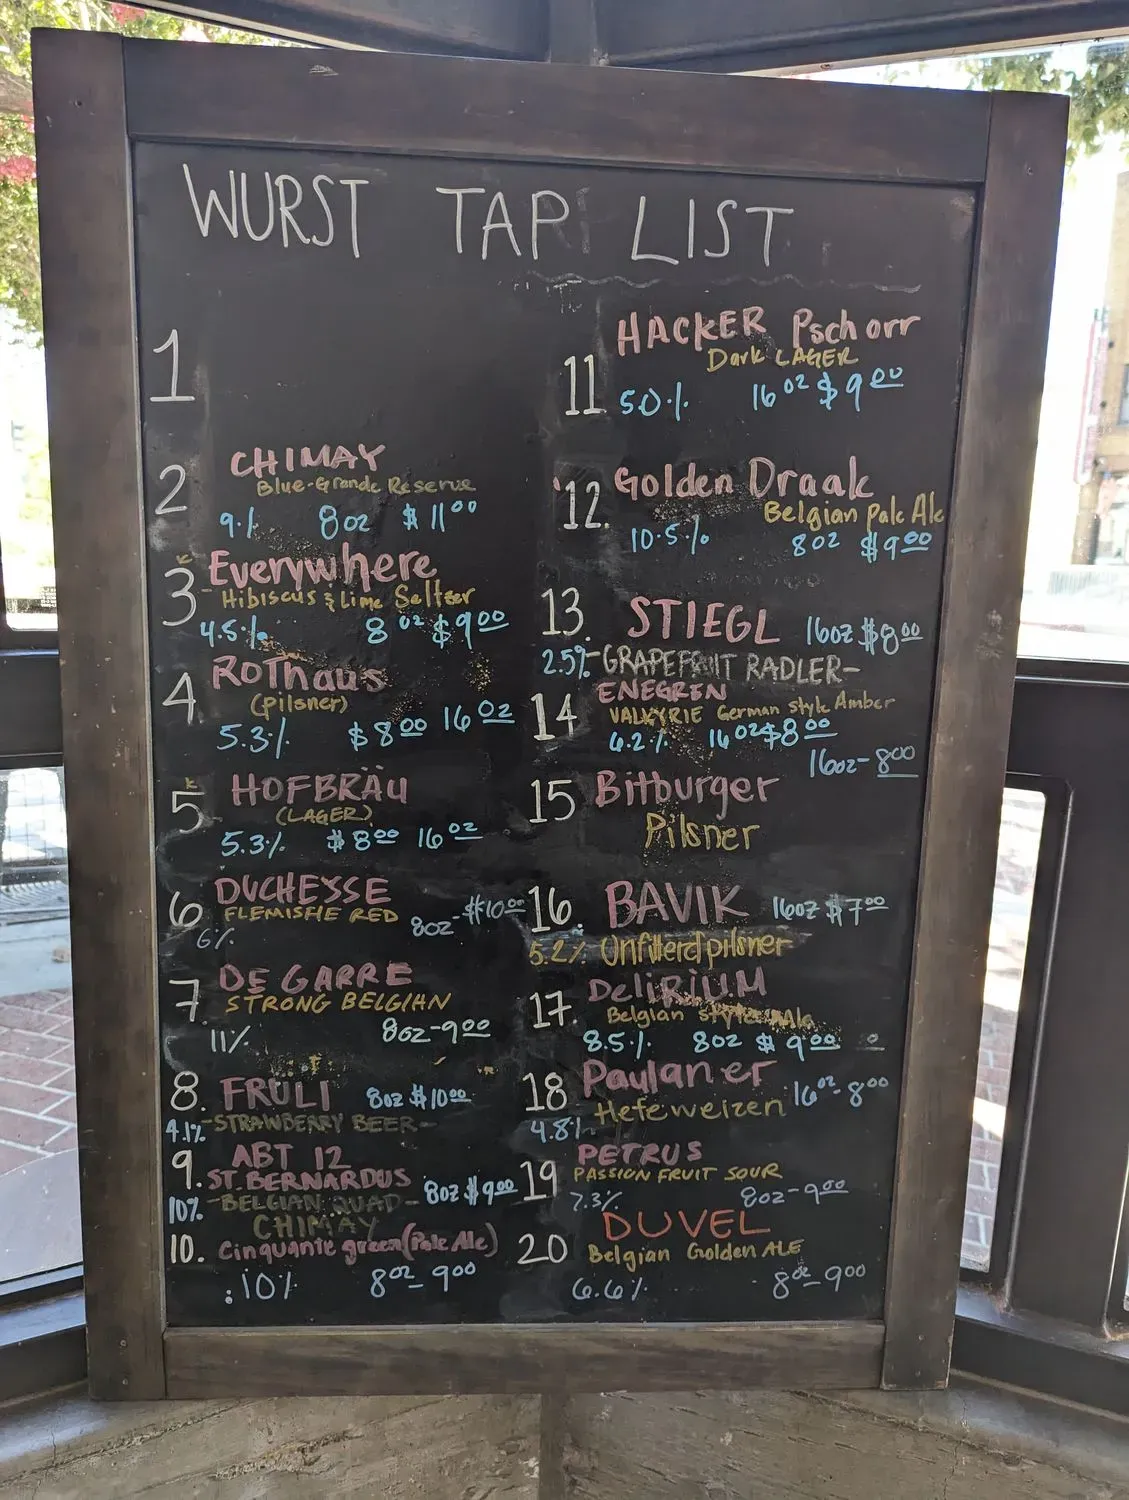 WURST TAP LIST
1
2 CHIMAY
Blue-Grande Reserve
9% 8oz $11.00
3 Everywhere
- Hibiscus & Lime Seltzer
4.5% 8oz $9.00
4 ROTHAUS
(pilsner)
5.3% $8.00 16oz
5 HOFBRÄU
(LAGER)
5.3% $8.00 16oz
6 DUCHESSE
FLEMISHE RED 8oz-$10.00
6%
7. DE GARRE
STRONG BELGIAN
11% 8oz-9.00
8. FRULI 8oz $10.00
4.1% -STRAWBERRY BEER-
9. ABT 12
ST. BERNARDUS 8oz $9.00
10% -BELGIAN QUAD-
CHIMAY
10. Cinquante green (Pale Ale)
10% 8oz-9.00
11 HACKER Pschorr
Dark LAGER
5.0% 16oz $9.00
12. Golden Draak
Belgian Pale Ale
10.5% 8oz $9.00
13. STIEGL 16oz $8.00
2.5% -GRAPEFRUIT RADLER-
14 ENEGREN
VALKYRIE German style Amber
6.2% 16oz $8.00
16oz-8.00
15 Bitburger
Pilsner
16. BAVIK 16oz $7.00
5.2% Unfilterd pilsner
17. DELIRIUM
Belgian style Ale
8.5% 8oz $9.00
18 Paulaner 16oz-8.00
Hefeweizen
4.8%
19 PETRUS
PASSION FRUIT SOUR
7.3% 8oz-9.00
20 DUVEL
Belgian Golden ALE
6.6% 8oz-9.00